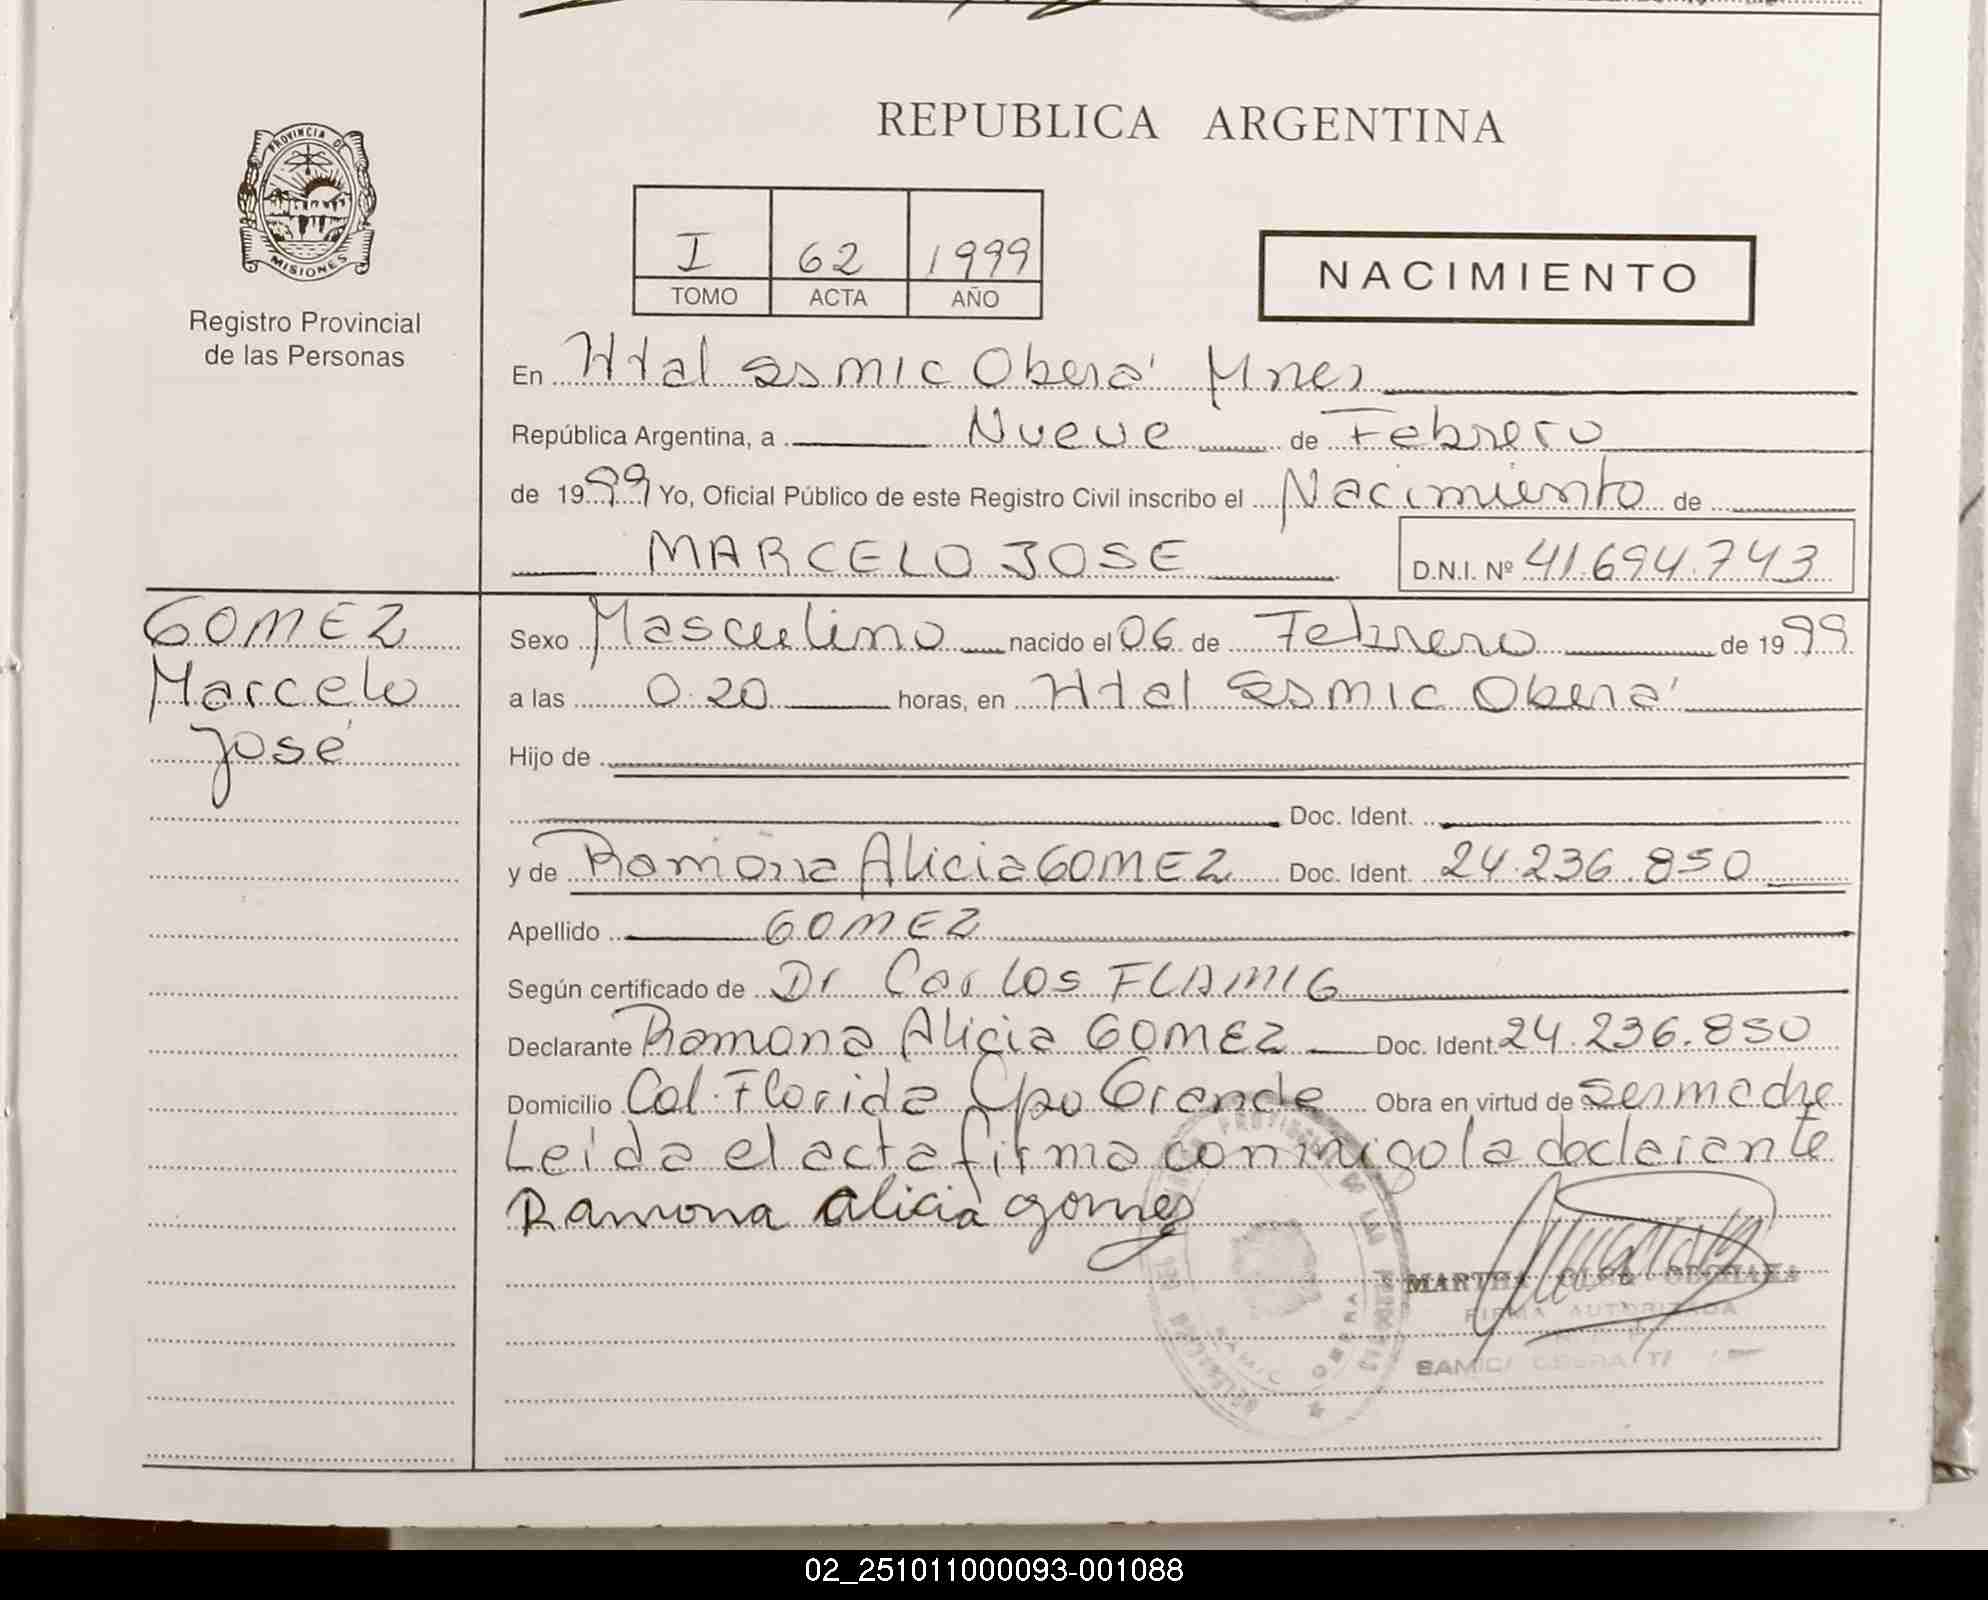 REPUBLICA ARGENTINA
PROVINCIA DE
MISIONES
Registro Provincial
de las Personas
I 62 1999
TOMO ACTA AÑO
NACIMIENTO
En Htal Samic Oberá Mnes
República Argentina, a Nueve de Febrero
de 1999 Yo, Oficial Público de este Registro Civil inscribo el Nacimiento de
MARCELO JOSE D.N.I. Nº 41.694.743
GOMEZ
Marcelo
José
Sexo Masculino nacido el 06 de Febrero de 1999
a las 0.20 horas, en Htal Samic Oberá
Hijo de
Doc. Ident.
y de Ramona Alicia GOMEZ Doc. Ident. 24.236.850
Apellido GOMEZ
Según certificado de Dr Carlos FLAMIG
Declarante Ramona Alicia GOMEZ Doc. Ident. 24.236.850
Domicilio Col. Florida Cpo Grande Obra en virtud de ser madre
Leída el acta firma conmigo la declarante
Ramona alicia gomez
MARTHA OLGA
FIRMA AUTORIZADA
SAMIC OBERA
02_251011000093-001088